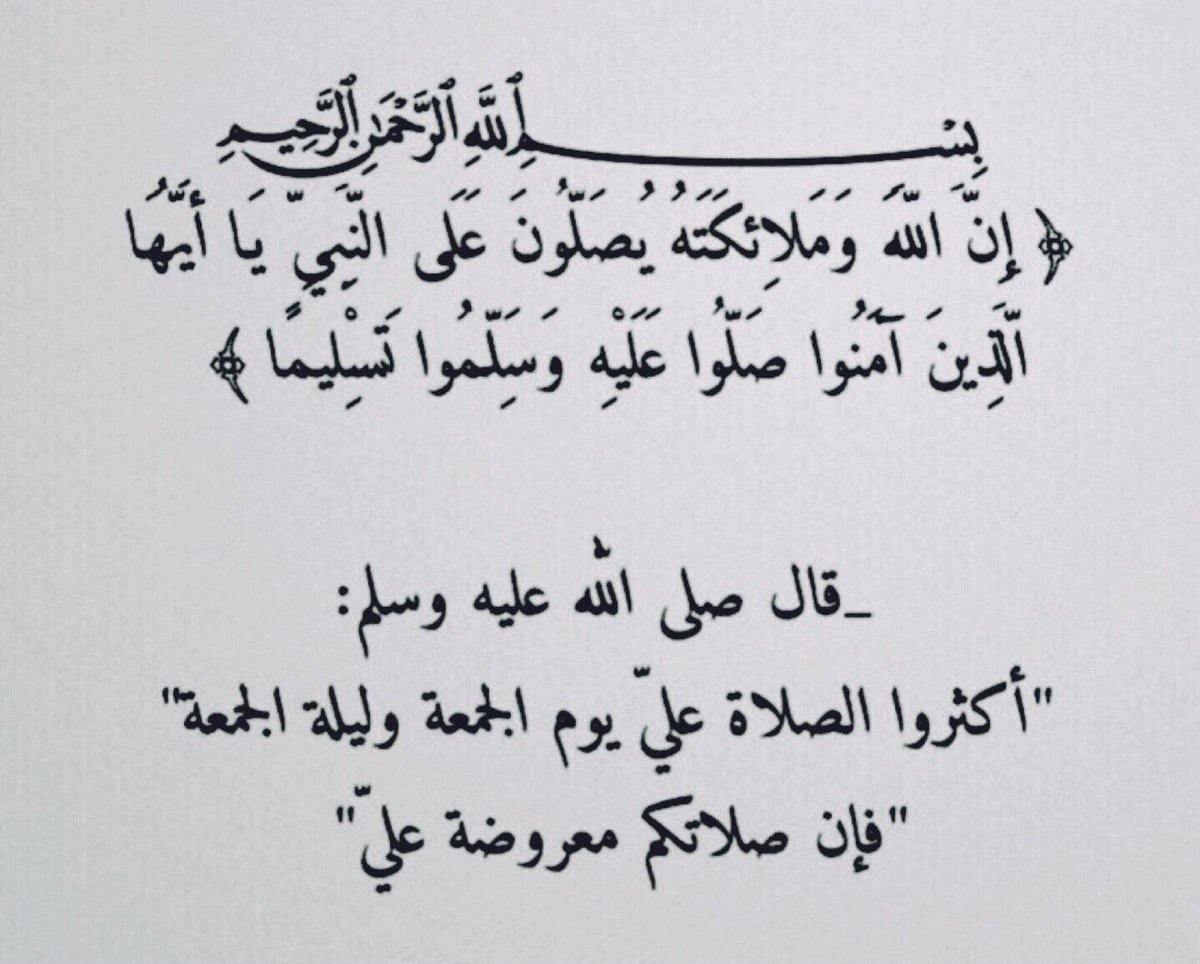 بِسْمِ ٱللَّهِ ٱلرَّحْمَٰنِ ٱلرَّحِيمِ
﴿ إِنَّ اللَّهَ وَمَلَائِكَتَهُ يُصَلُّونَ عَلَى النَّبِيِّ يَا أَيُّهَا
الَّذِينَ آمَنُوا صَلُّوا عَلَيْهِ وَسَلِّمُوا تَسْلِيمًا ﴾
_قال صلى الله عليه وسلم:
"أكثروا الصلاة عليّ يوم الجمعة وليلة الجمعة"
"فإن صلاتكم معروضة عليّ"